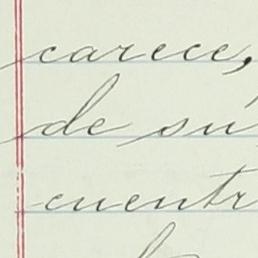 carece,
de su
cuentr